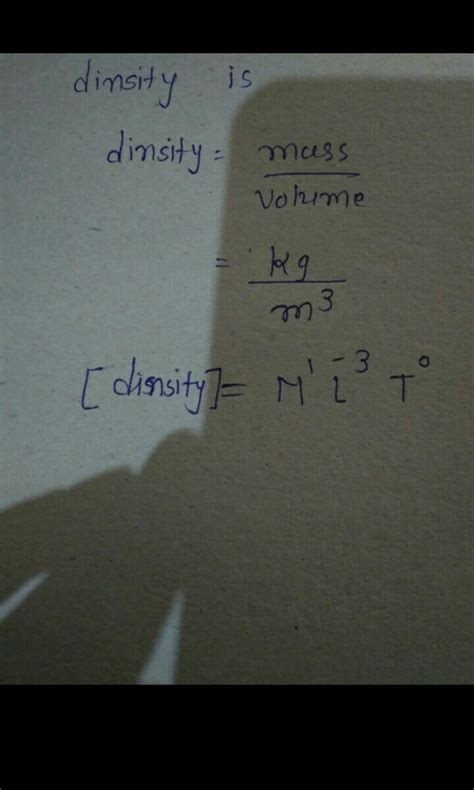 dinsity is
dinsity = mass
volume
= kg
m³
[dinsity] = M¹ L⁻³ T⁰